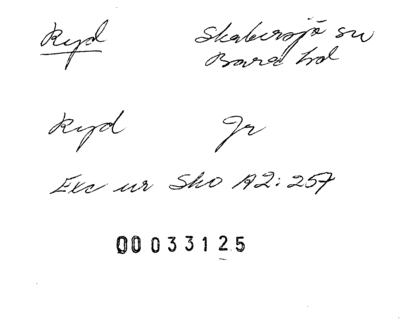 Ryd Skabersjö sn
Bara hd
Ryd Jr
Exc ur Sko A2:257
00033125